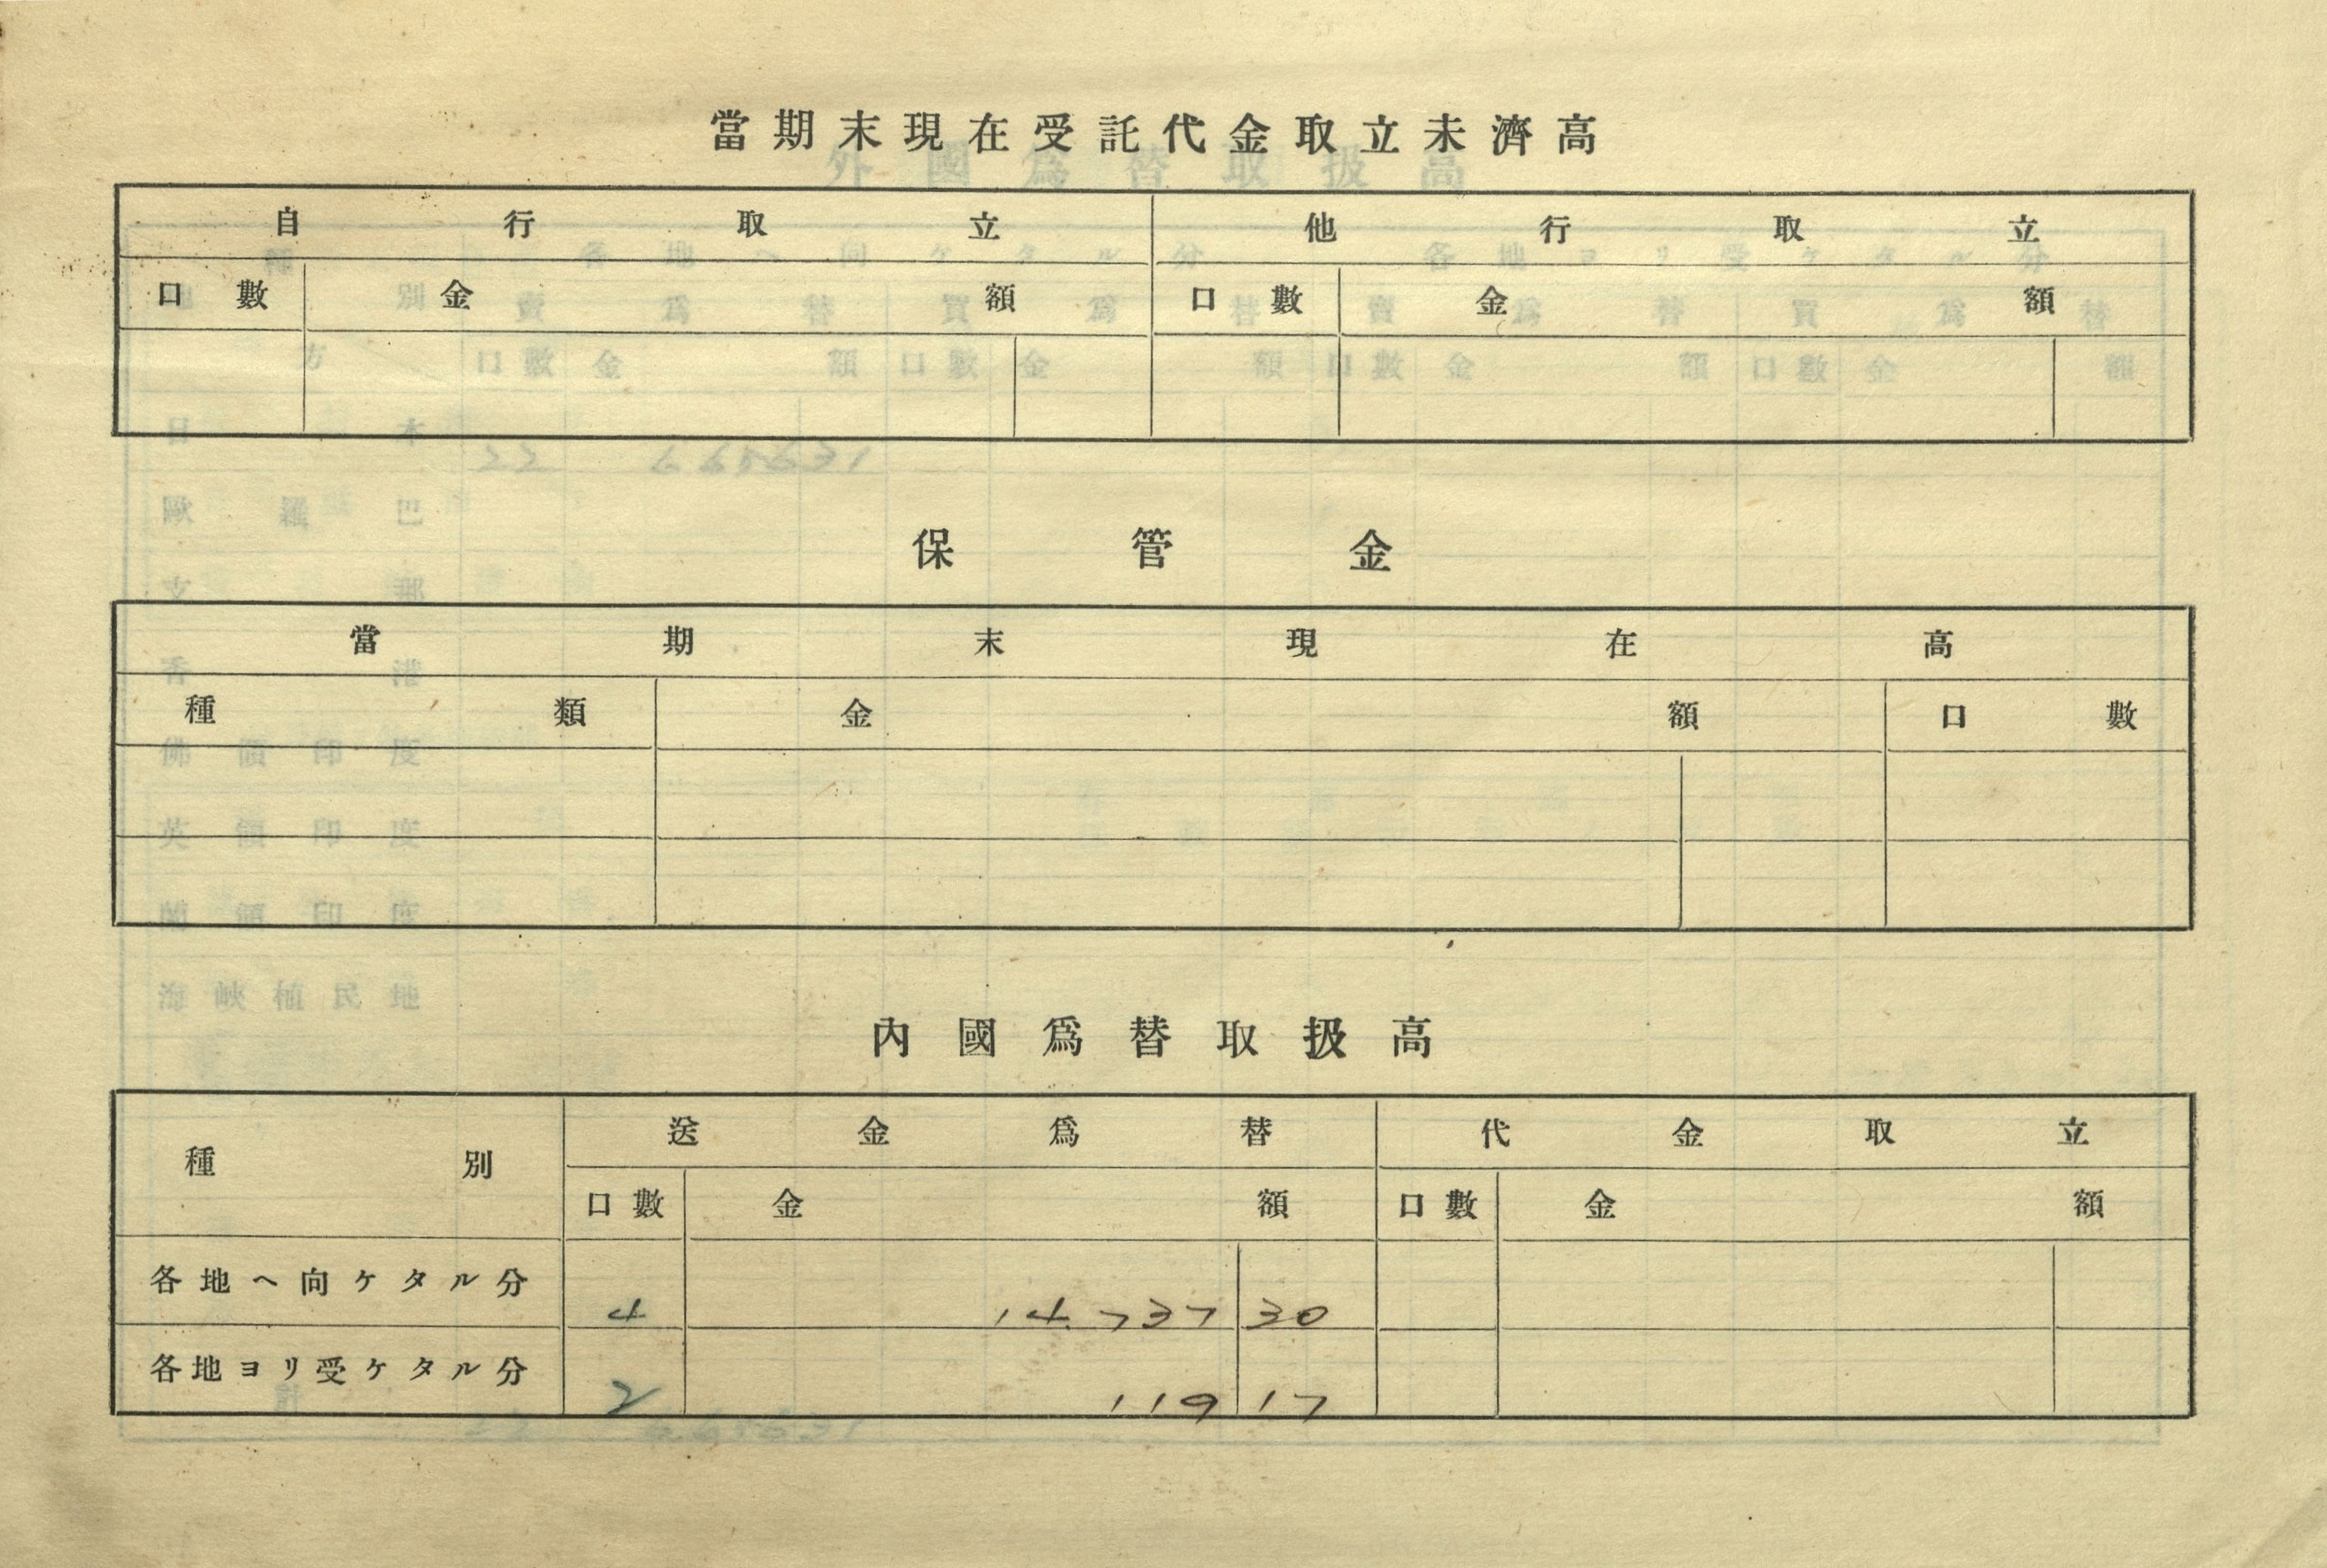 當期末現在受託代金取立未濟高
自行取立 他行取立
口數 金額 口數 金額
保管金
當期末現在高
種類 金額 口數
內國爲替取扱高
種別 送金爲替 代金取立
口數 金額 口數 金額
各地ヘ向ケタル分 4 14.737 30
各地ヨリ受ケタル分 2 119 17